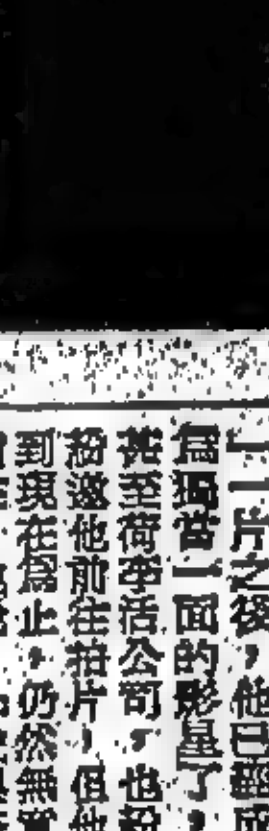 一一片之後，他已
為獨當一面的影星了，
甚至荷李活公司，也
紛邀他前往拍片，但他
到現在為止，仍然無